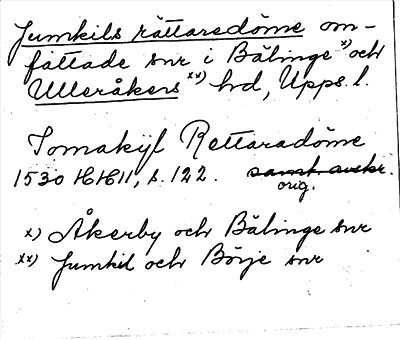 Jumkils rättaredöme om-
fattade snr i Bälinge x) och
Ulleråkers xx) hd, Upps. l.
Jomakyl Rettaradöme
1530 HH 11, s. 122. samt. avskr.
orig.
x) Åkerby och Bälinge snr
xx) Jumkil och Börje snr